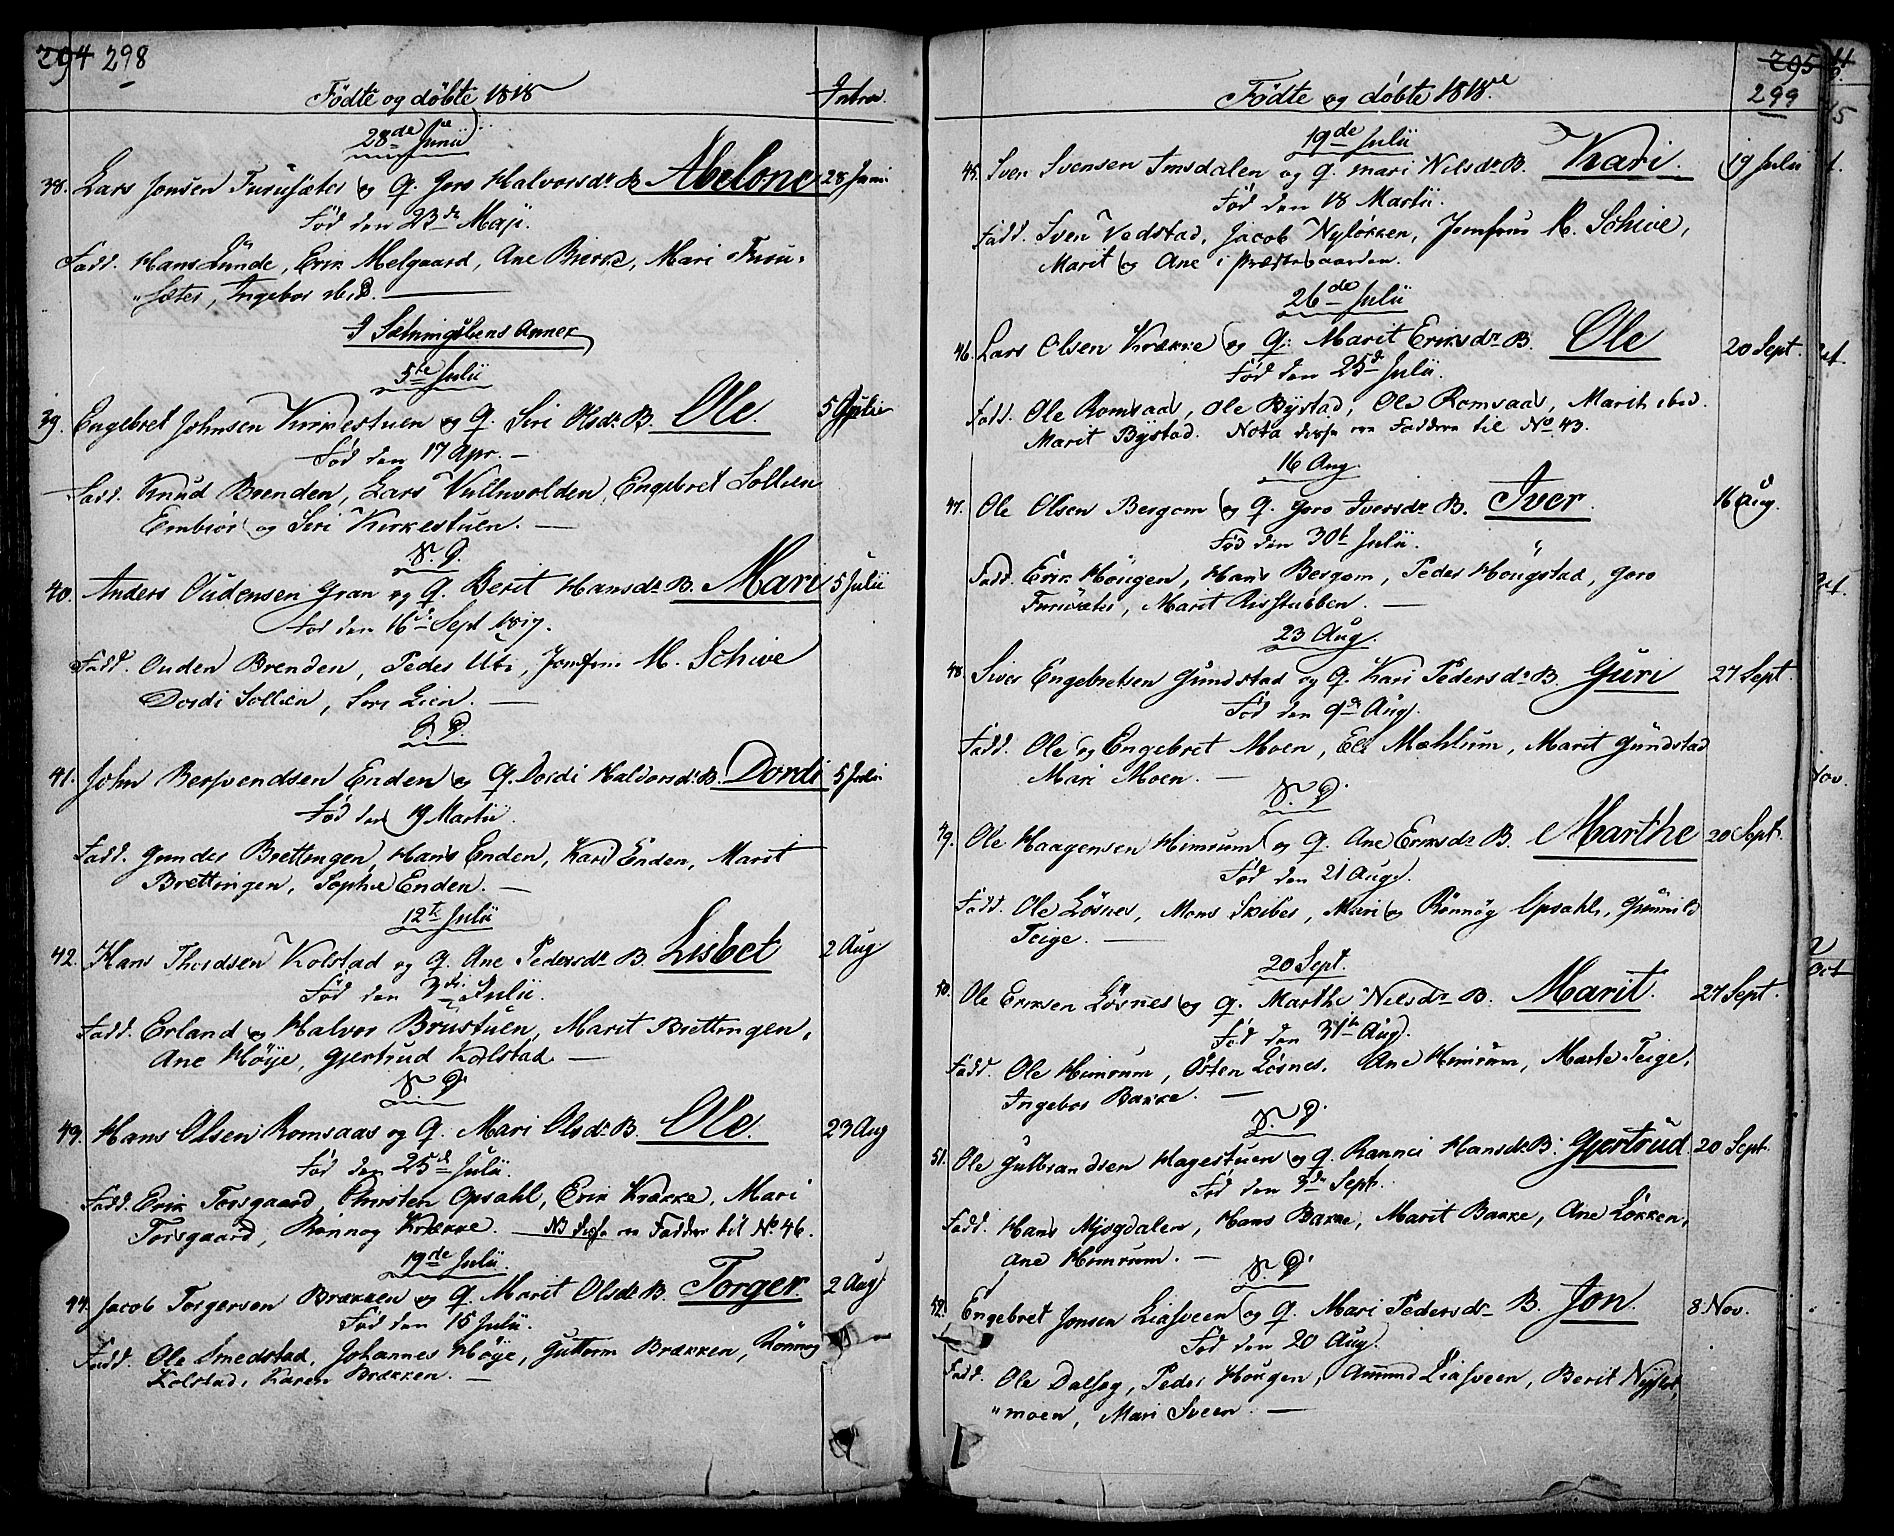 294 298
Fødte og døbte 1818 Introd.
28de Junii
38. Lars Jonsen Furusæter og Q. Goro Halvorsdr B. Abelone 28 Juni
Fød den 23de Maji.
Fadd. Hans Lunde, Erik Melgaard, Ane Bierke, Mari Furu-
"sæter, Ingebor ibid.
I Sætningsbens Annex
5te Julii
39. Engebret Johnsen Kirkestuen og Q. Siri Olsdr B. Ole. 5 Julii
Fød den 17 Apr.
Fadd. Knud Brenden, Lars Vulluvolden, Engebret Sollien
Embiør og Siri Kirkestuen.
S. D.
40. Anders Oudensen Gran og Q. Berit Hansdr B. Mari 5 Julii
Fød den 16de Sept 1817.
Fadd. Ouden Brenden, Peder Uti, Jomfrue M. Schive
Dordi Sollien, Lien.
S. D.
41. John Bersvendsen Enden og Q. Dordi Halvorsdr B. Dordi 5 Julii
Fød den 19 Martii.
Fadd. Gunder Brettingen, Hans Enden, Kari Enden, Marit
Brettingen, Sophie Enden.
12te Julii
42. Hans Thordsen Kolstad og Q. Ane Pedersdr B. Lisbet 2 Aug
Fød den 3die Julii.
Fadd. Erland og Halvor Brustuen, Marit Brettingen,
Ane Høye, Gjertrud Kolstad
S. D.
43. Hans Olsen Romsaas og Q. Mari Olsdr B. Ole. 23 Aug
Fød den 25de Julii.
Fadd. Erik Forsgaard, Christen Opsahl, Erik Krække, Mari
Forsgaard, Rønnog Krække. NB disse ere Faddere til No 46.
19de Julii
44. Jacob Torgersen Brækken og Q. Marit Olsdr B. Torger. 2 Aug
Fød den 15 Julii.
Fadd. Ole Smedstad, Johannes Høye, Guttorm Brækken, Rønnog
Kolstad, Karen Brækken.
295
Fødte og døbte 1818. 299
19de Julii
45. Sven Svensen Imsdalen og Q. Mari Nilsdr B. Kari. 19 Julii
Fød den 18 Martii.
Fadd. Sven Vedstad, Jacob Nyløkken, Jomfrue M. Schive,
Marit og Ane i Præstegaarden.
26de Julii
46. Lars Olsen Krække og Q. Marit Eriksdr B. Ole 20 Sept.
Fød den 25de Julii.
Fadd. Ole Romsaas, Ole Bystad, Ole Romsaas, Marith ibid.
Marit Bystad. Nota disse ere Faddere til No 43.
16 Aug.
47. Ole Olsen Bergom og Q. Goro Iversdr B. Iver. 16 Aug.
Fød den 30te Julii.
Fadd. Erik Hougen, Hans Bergom, Peder Hougstad, Goro
Furusæter, Marit Risstubben.
23 Aug.
48. Siver Engebretsen Gundstad og Q. Kari Pedersdr B. Guri 27 Sept.
Fød den 9de Aug.
Fadd. Ole og Engebret Moen, Eli Mæhlum, Marit Gundstad
Mari Moen.
S. D.
49. Ole Haagensen Himrum og Q. Ane Eriksdr B. Marthe 20 Sept.
Fød den 21 Aug.
Fadd. Ole Løsnes, Mons Skibes, Mari og Rønnøg Opsahl, Gunnild
Teige.
20 Sept.
50. Ole Eriksen Løsnes og Q. Marthe Nilsdr B. Marit. 27 Sept.
Fød den 31te Aug.
Fadd. Ole Himrum, Østen Løsnes, Ane Himrum, Marte Teige,
Ingebor Bakke.
S. D.
51. Ole Gulbrandsen Hagestuen og Q. Rannei Hansdr B. Gjertrud. 20 Sept.
Fød den 3de Sept.
Fadd. Hans Mysgdalen, Hans Bakke, Marit Bakke, Ane Løkken,
Ane Himrum.
S. D.
52. Engebret Jonsen Liasveen og Q. Mari Pedersdr B. Jon. 8 Nov.
Fød den 20 Aug.
Fadd. Ole Dalseg, Peder Hougen, Amund Liasveen, Berit
"moen, Mari Sveen.